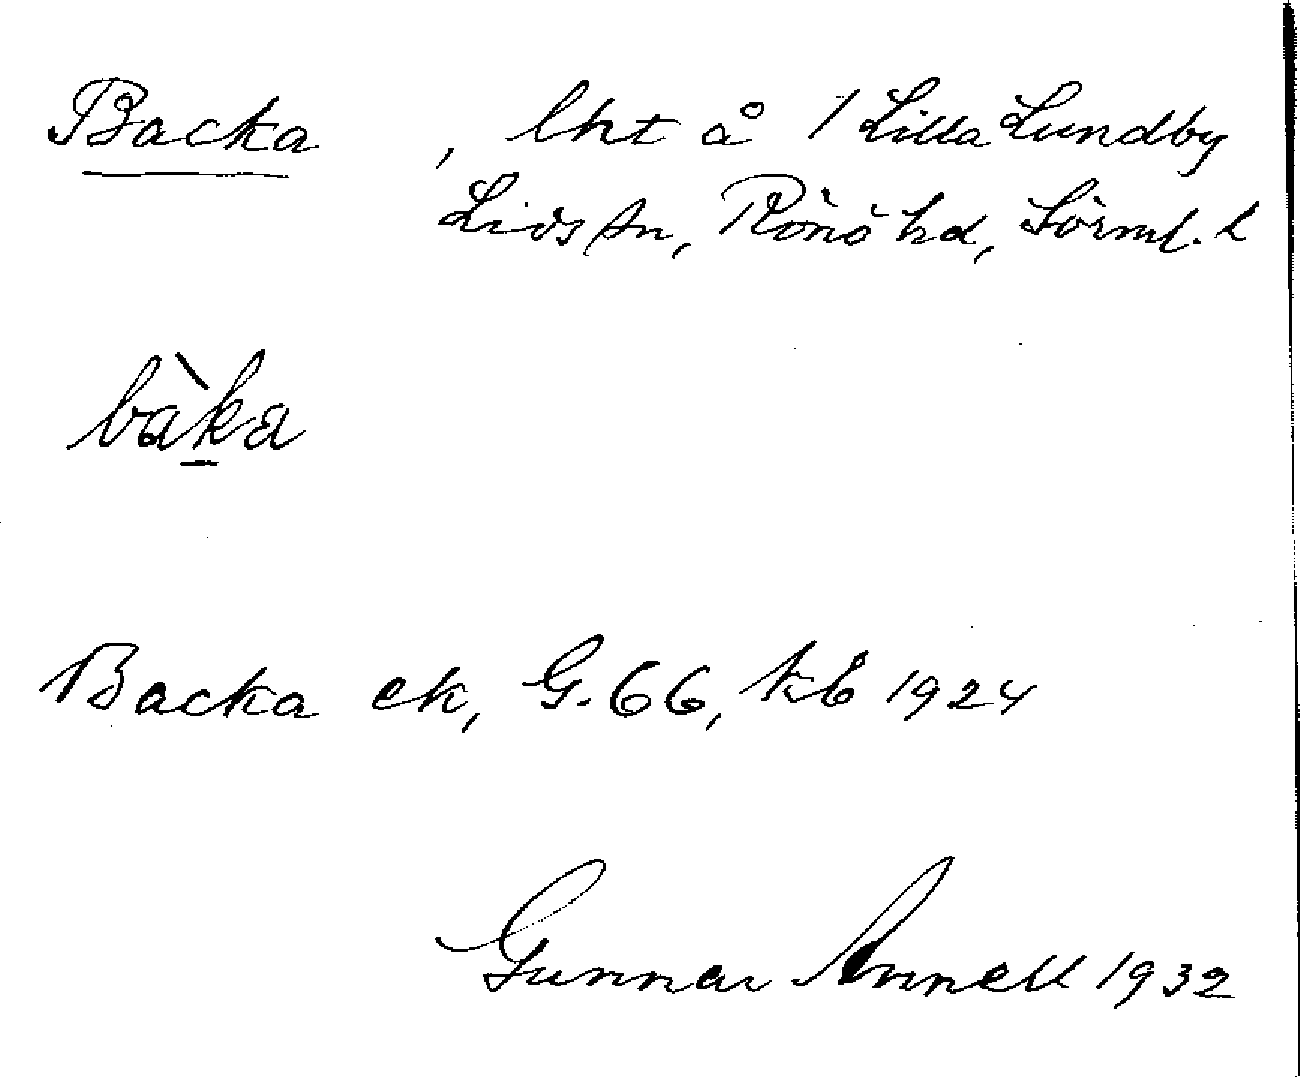 Backa , lht å 1 Lilla Lundby
Lids sn, Rönö hd, Sörml. l
bàka
Backa ek, G. 66, kb 1924
Gunnar Annell 1932